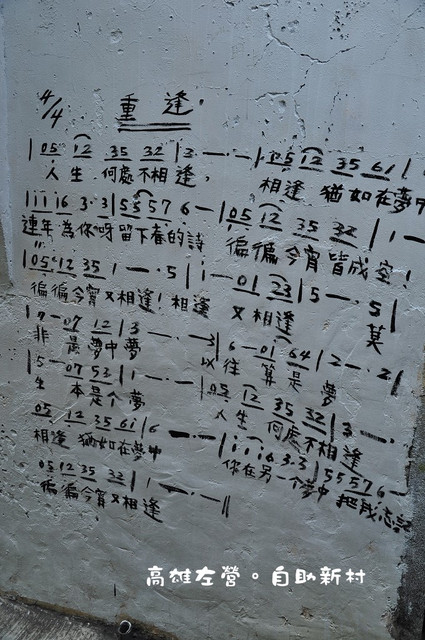 4/4 重逢.
| 05 12 35 32 | 3 - · - | 05 12 35 61 |
人生 何處不相逢, 相逢 猶如在夢中
| i i i 6 3·3 | 5 5 5 7 6 - | 05 12 35 32 | 1 -
連年為你呀留下春的詩 偏偏今宵皆成空!
| 05·12 35 1 - · 5 | 1 - 01 23 | 5 - · 5 |
偏偏今宵又相逢! 相逢 又相逢 莫
| 7 - 07 12 | 3 - · - 3 | 6 - 01 64 | 2 - · 2 |
非 是夢中夢 以往 算是 夢
| 5 - 07 53 | 1 - · - | 05 12 35 32 | 3 - ·
生 本是個夢 人生 何處不相逢
05 12 35 61 | 6 - · - | i i i 6 3·3 | 5 5 5 7 6 -
相逢 猶如在夢中 你在另一個夢中 把我忘記
05 12 35 32 | 1 - · - ||
偏偏今宵又相逢
高雄左營。自助新村